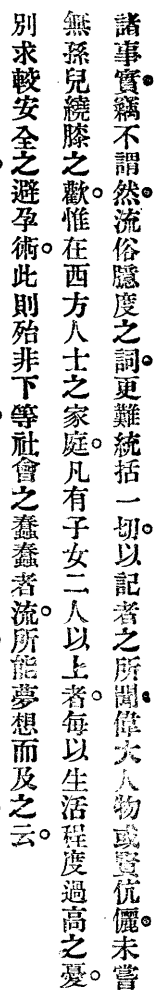 諸事實竊不謂然流俗臆度之詞更難統括一切以記者之所聞偉大人物或賢伉儷未嘗
無孫兒繞膝之歡惟在西方人士之家庭凡有子女二人以上者每以生活程度過高之憂
別求較安全之避孕術此則殆非下等社會之蠢蠢者流所能夢想而及之云